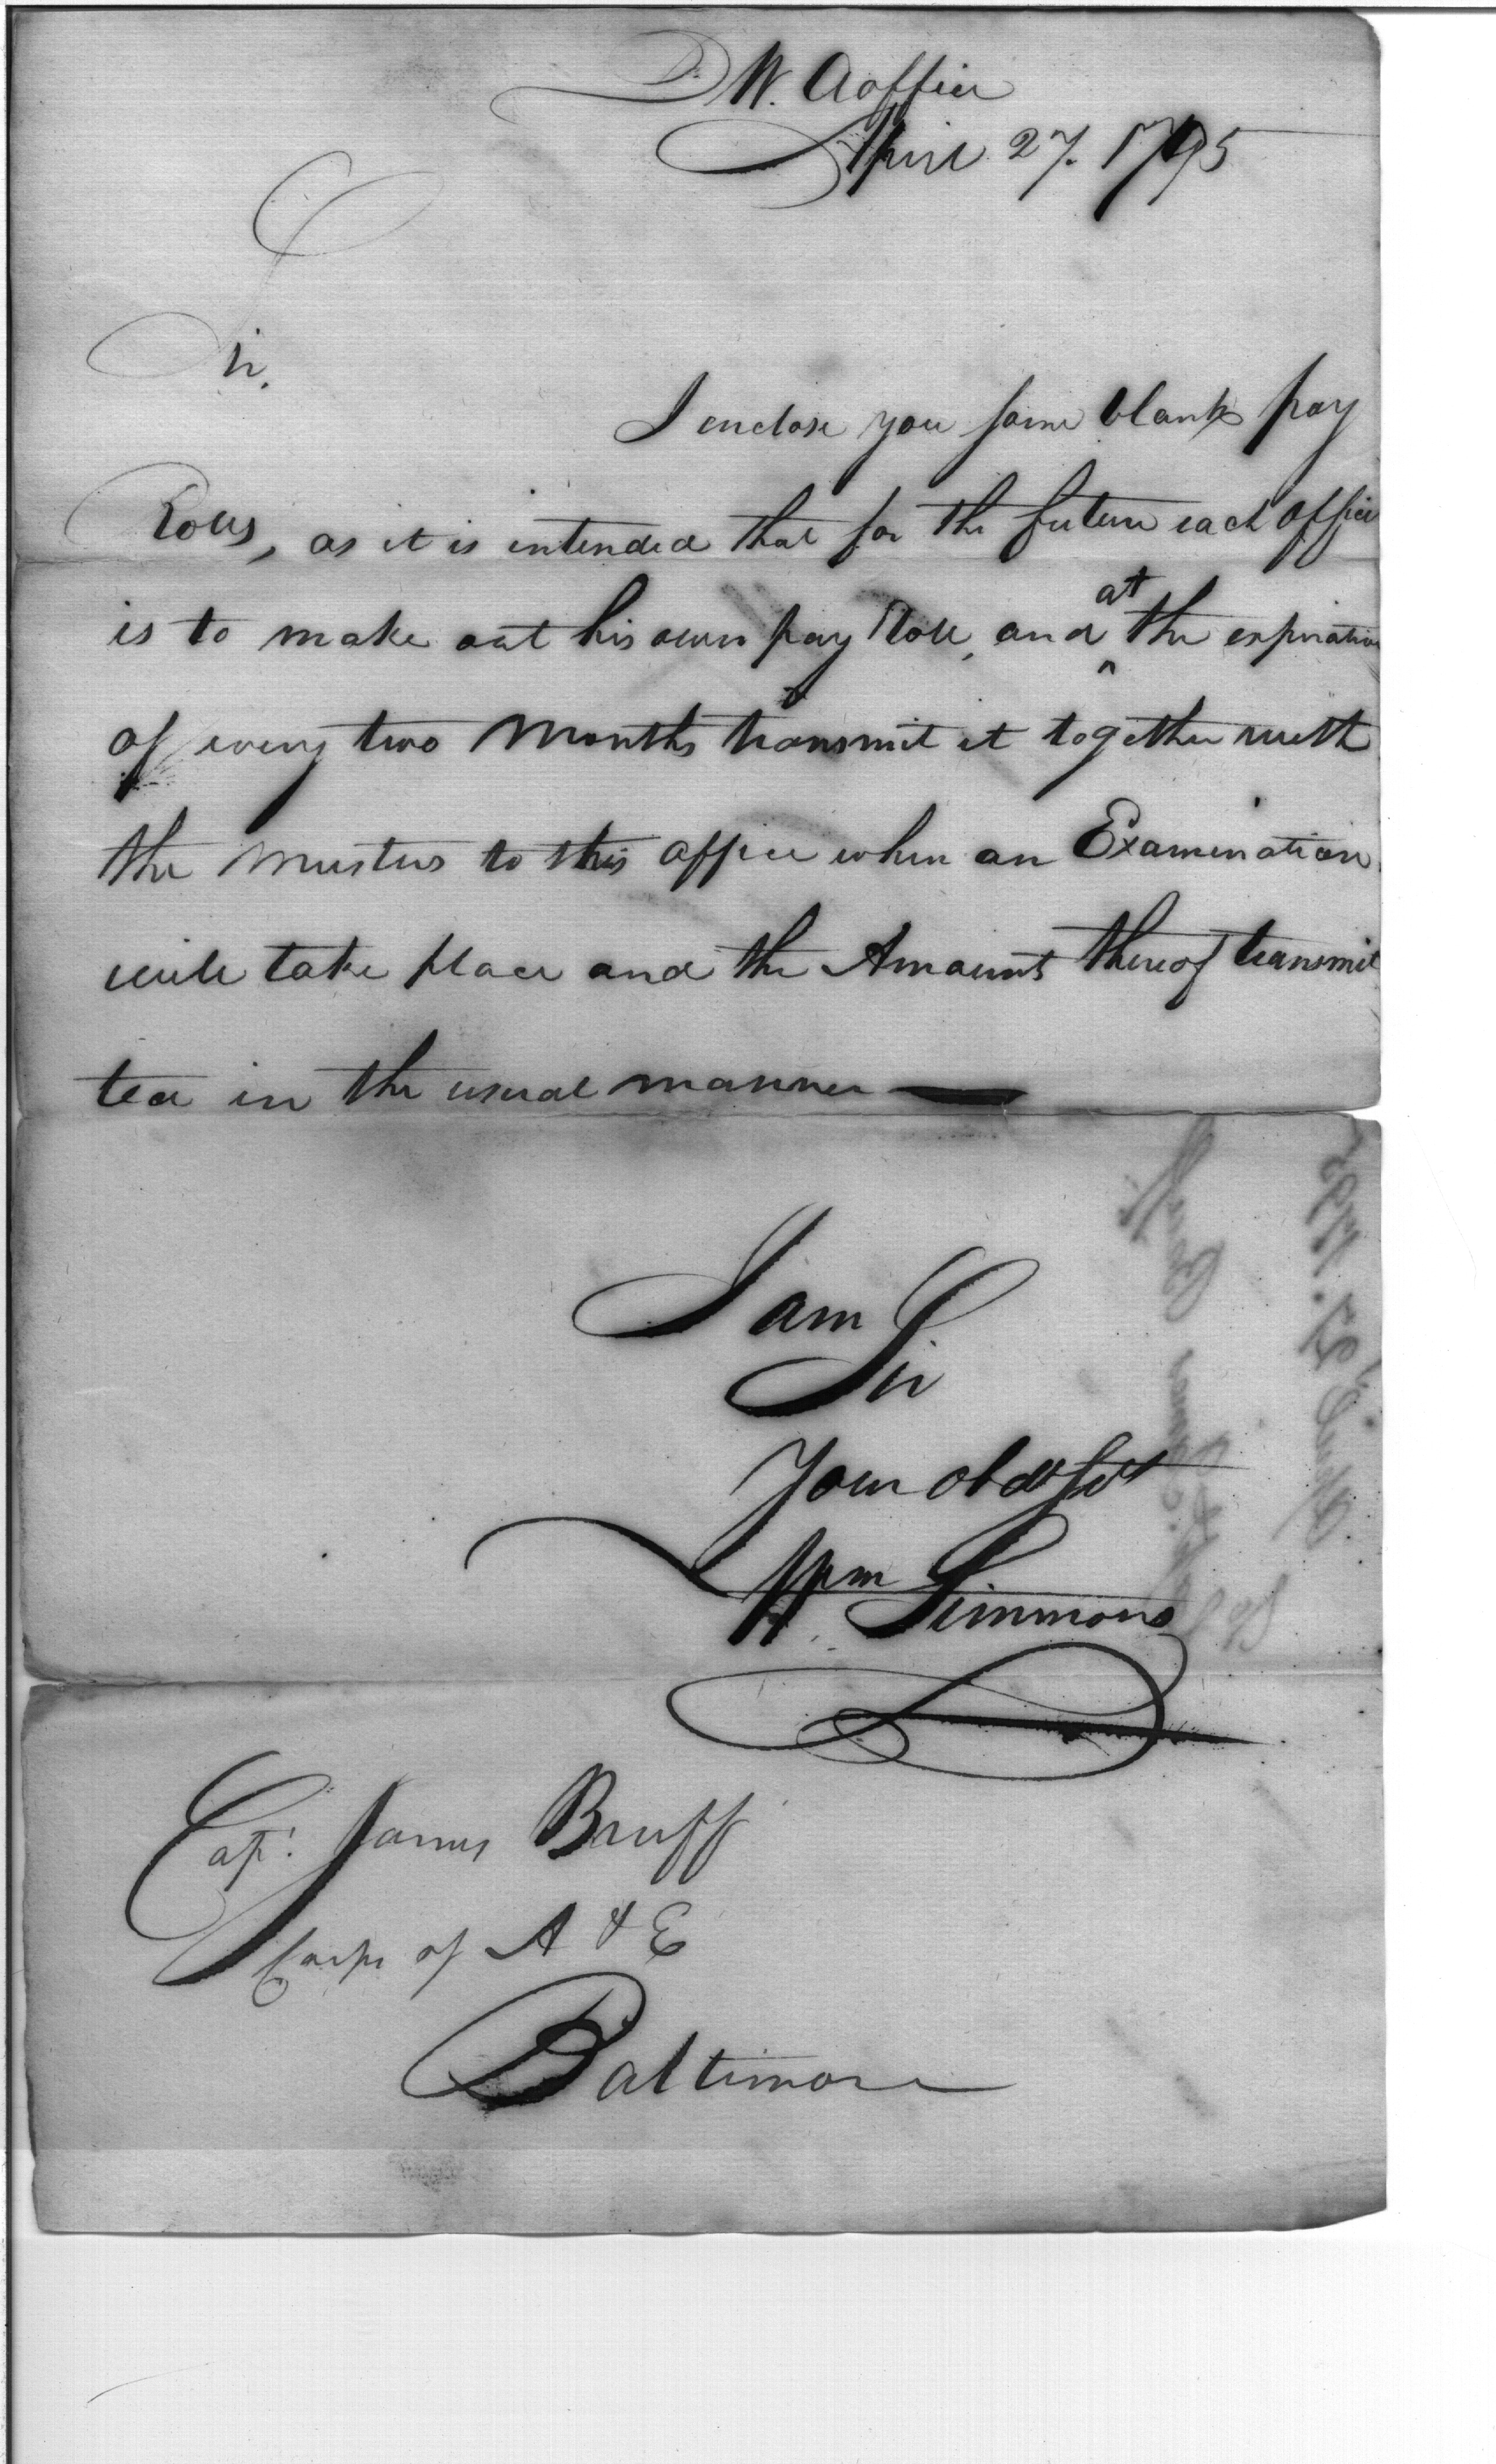 D W. A office
April 27. 1795
Sir,
I enclose you some blank pay
Rolls, as it is intended that for the future each officer
is to make out his own pay Roll, and at the expiration
of every two Months transmit it together with
the Musters to this office when an Examination
will take place and the Amount thereof transmit
ted in the usual manner —
I am
Sir
Your obdt Sert
Wm Simmons
Capt. James Bruff
Corps of A & E
Baltimore